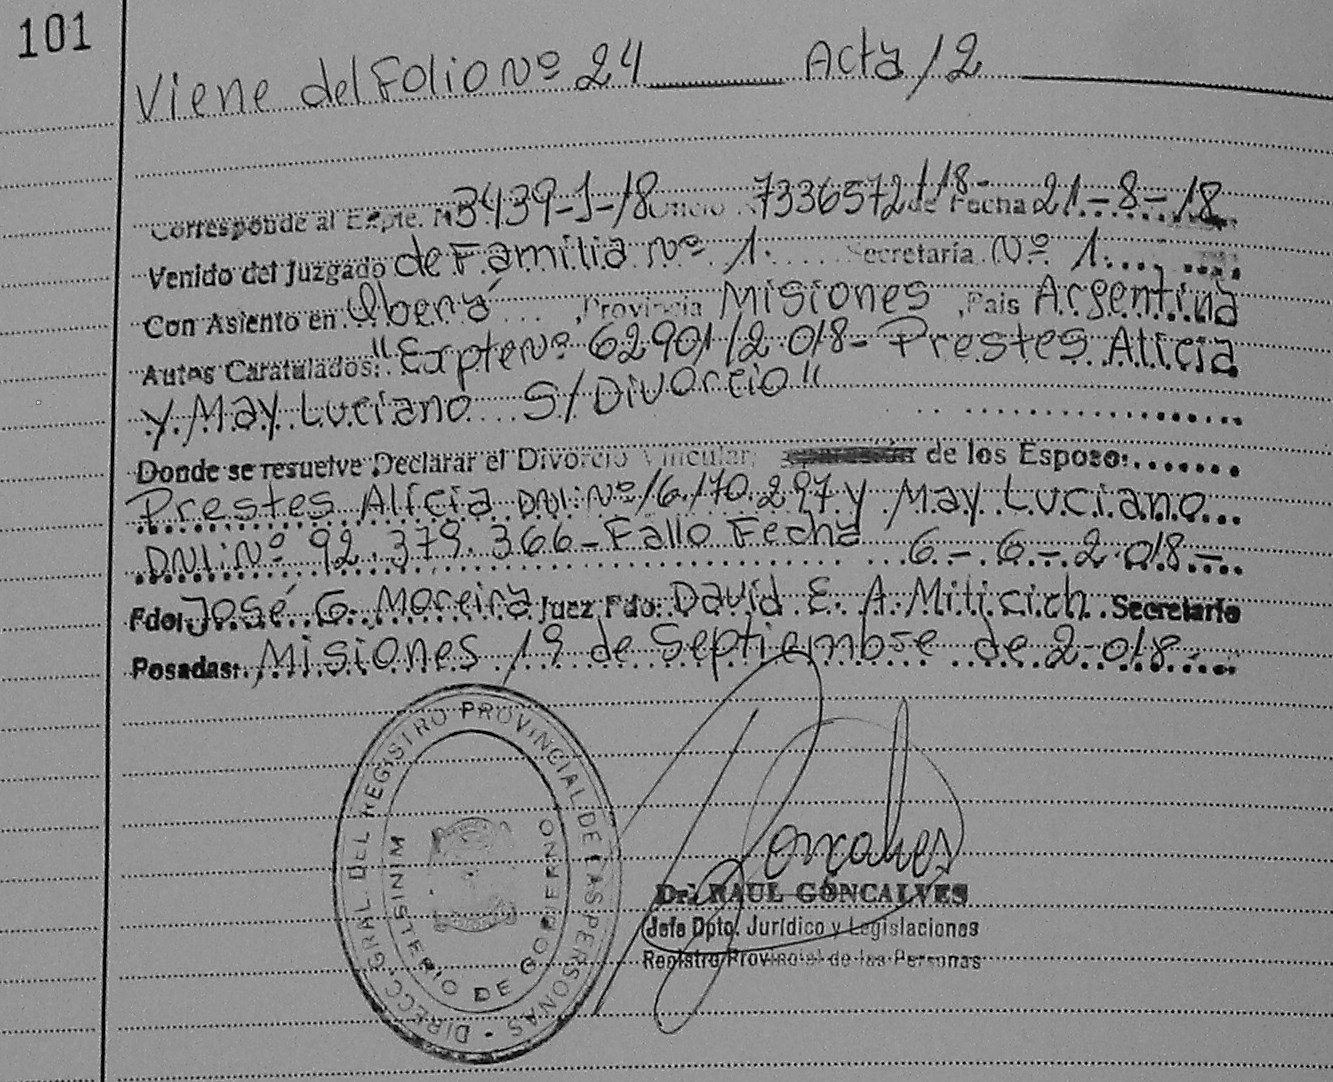 101
Viene del Folio Nº 24 Acta 12
Corresponde al Expte. Nº 3439-J-18 Oficio 7336572/18- de Fecha 21-8-18
Venido del Juzgado de Familia Nº 1. Secretaría Nº 1.
Con Asiento en Oberá ,Provincia Misiones ,Pais Argentina
Autos Caratulados: "Expte Nº 62901/2018- Prestes Alicia
y May Luciano S/Divorcio"
Donde se resuelve Declarar el Divorcio Vincular, de los Esposos:
Prestes Alicia DNI: Nº 16.170.297 y May Luciano
DNI: Nº 92.379.366- Fallo Fecha 6-6-2018-
Fdo: José G. Moreira Juez Fdo: David E. A. Miticich Secretario
Posadas: Misiones 19 de Septiembre de 2018
DIRECC GRAL. DEL REGISTRO PROVINCIAL DE LAS PERSONAS -
MINISTERIO DE GOBIERNO
Goncalves
Dr. RAUL GONCALVES
Jefe Dpto. Jurídico y Legislaciones
Registro Provincial de las Personas